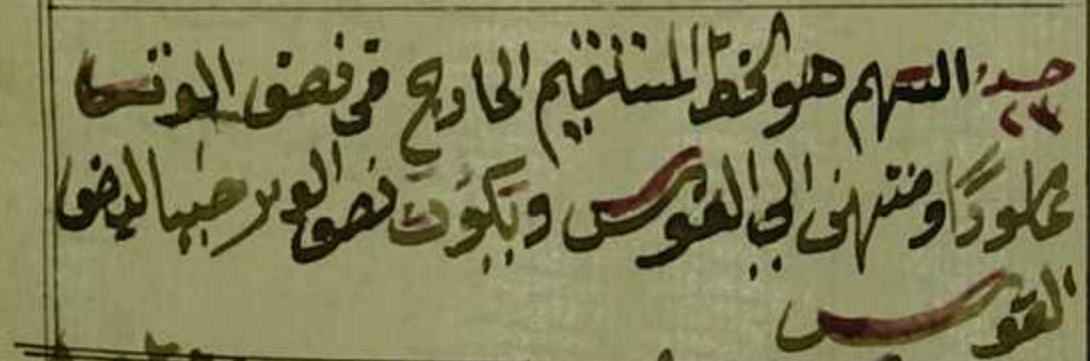 حد السهم هو الخط المستقيم الخارج من نصف الوتر
عمودًا ومنتهى الى القوس ويكون نصف الوتر جيبا لنصف
القوس